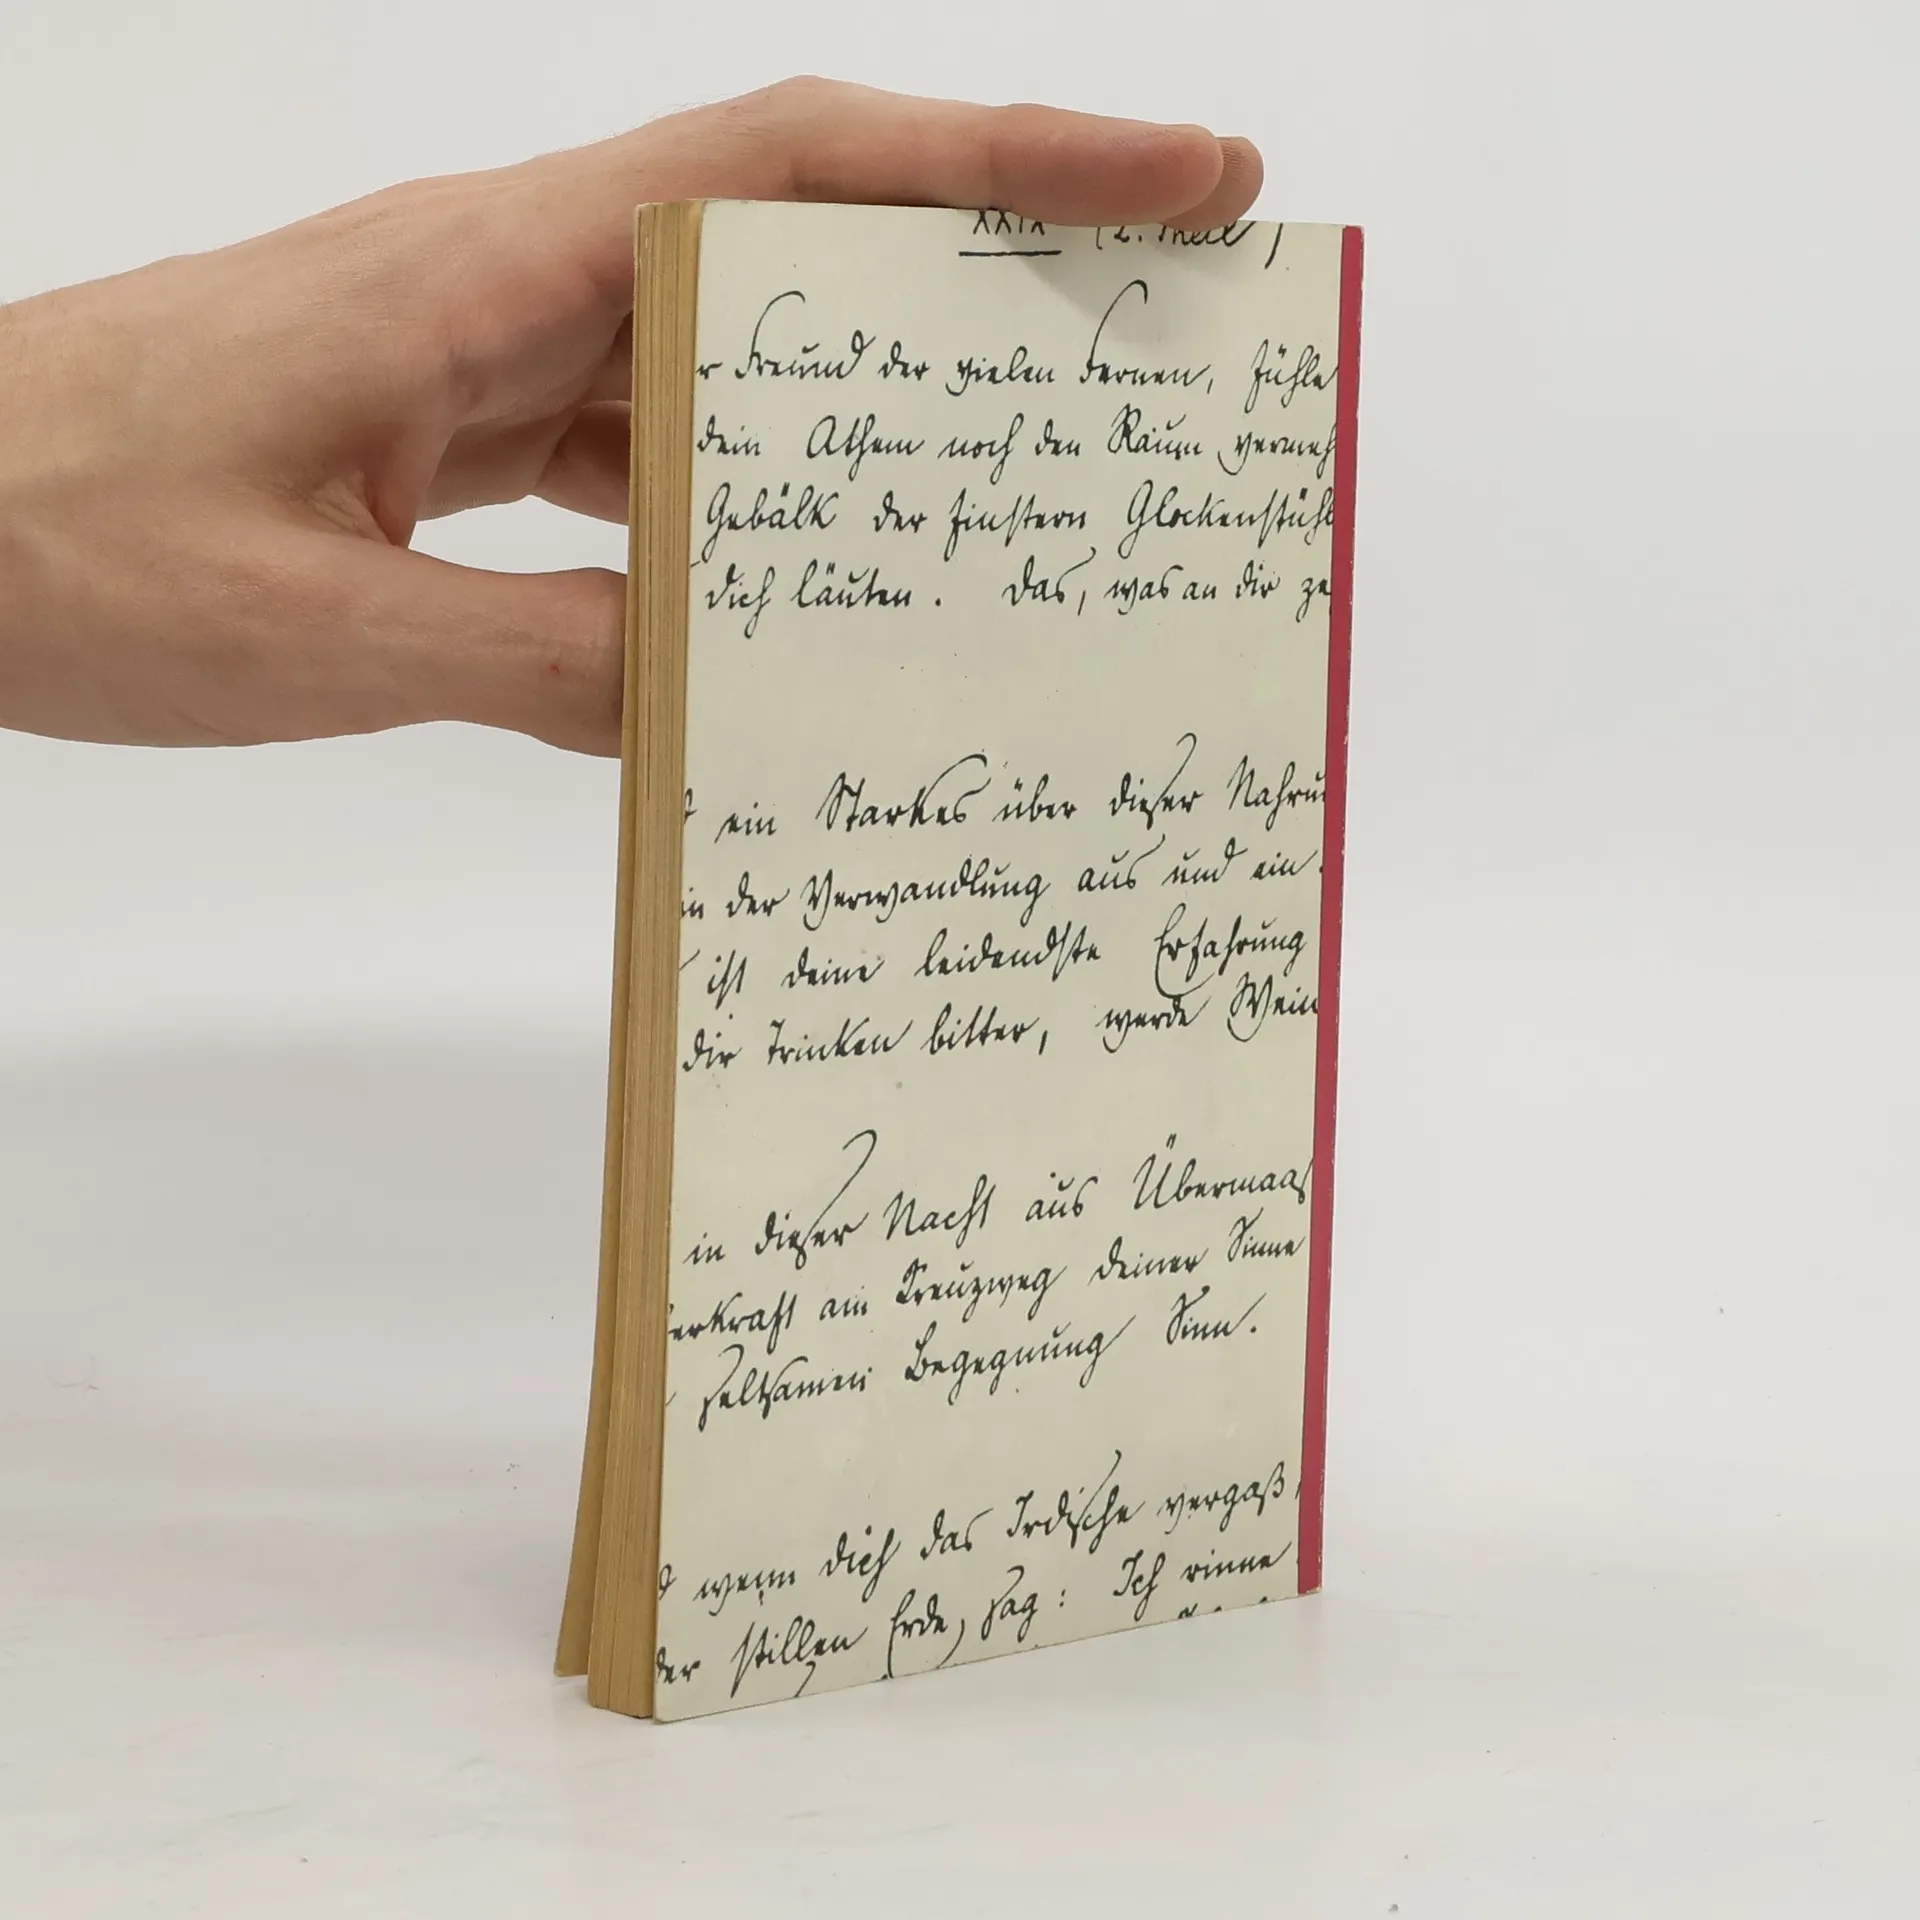 XXIX (2. Theil)
r Freund der vielen Fernen, fühle
dein Athem noch den Raum vermeh
Gebälk der finstern Glockenstühl
dich läuten. Das, was an dir ze
ein Starkes über dieser Nahru
in der Verwandlung aus und ein.
ist deine leidendste Erfahrung
dir Trinken bitter, werde Wein
in dieser Nacht aus Übermaaß
erkraft am Kreuzweg deiner Sinne
seltsamen Begegnung Sinn.
wenn dich das Irdische vergaß,
der stillen Erde, sag: Ich rinne